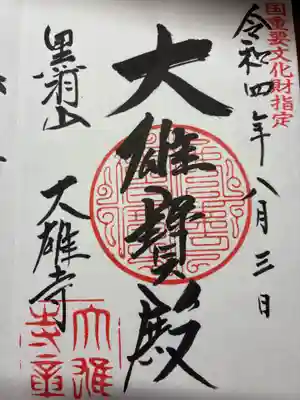 国重要文化財指定
令和四年八月三日
大雄寳殿
黒羽山 大雄寺